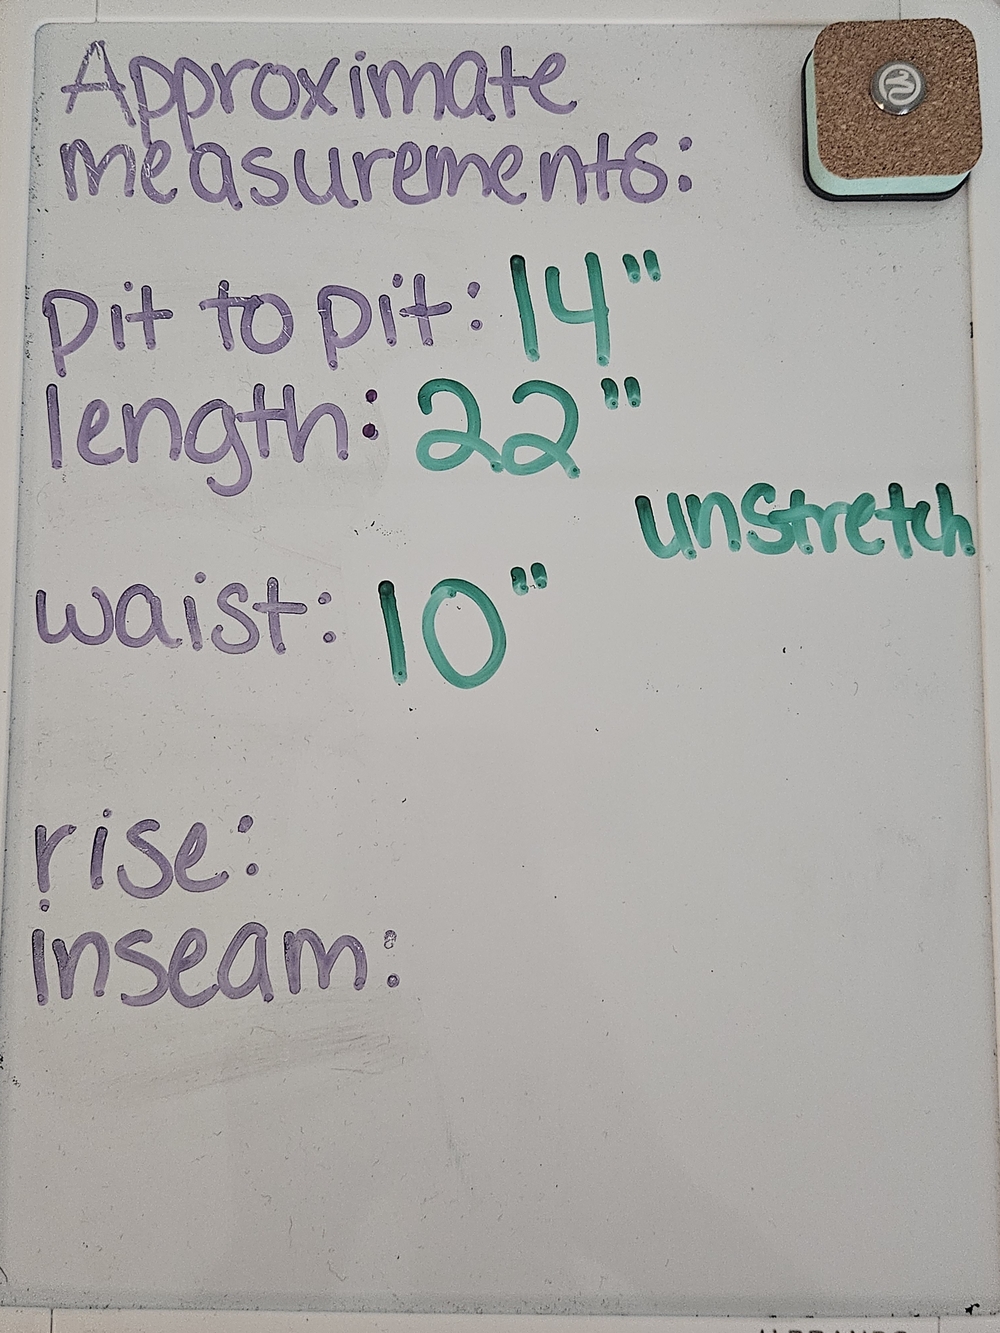 Approximate
measurements:
pit to pit: 14"
length: 22"
unstretch
waist: 10"
rise:
inseam: